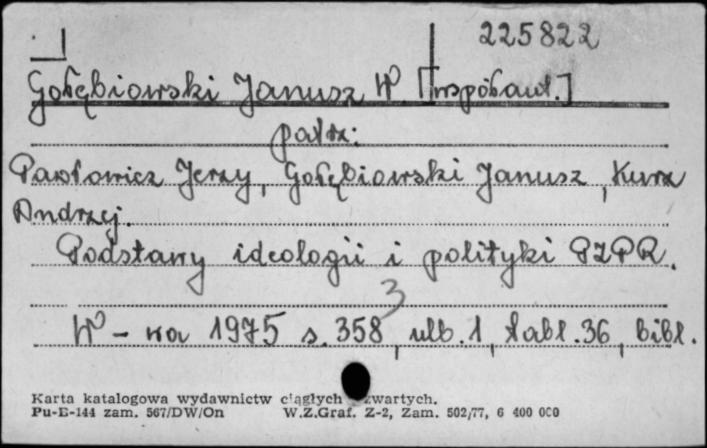 225822
Gołębiowski Janusz W. [współaut.]
patrz:
Pawłowicz Jerzy, Gołębiowski Janusz, Kurz
Andrzej.
Podstawy ideologii i polityki PZPR.
3
W-wa 1975 s. 358, ulb. 1, tabl. 36, bibl.
Karta katalogowa wydawnictw ciągłych zwartych.
Pu-E-144 zam. 567/DW/On W.Z.Graf. Z-2, Zam. 502/77, 6 400 000